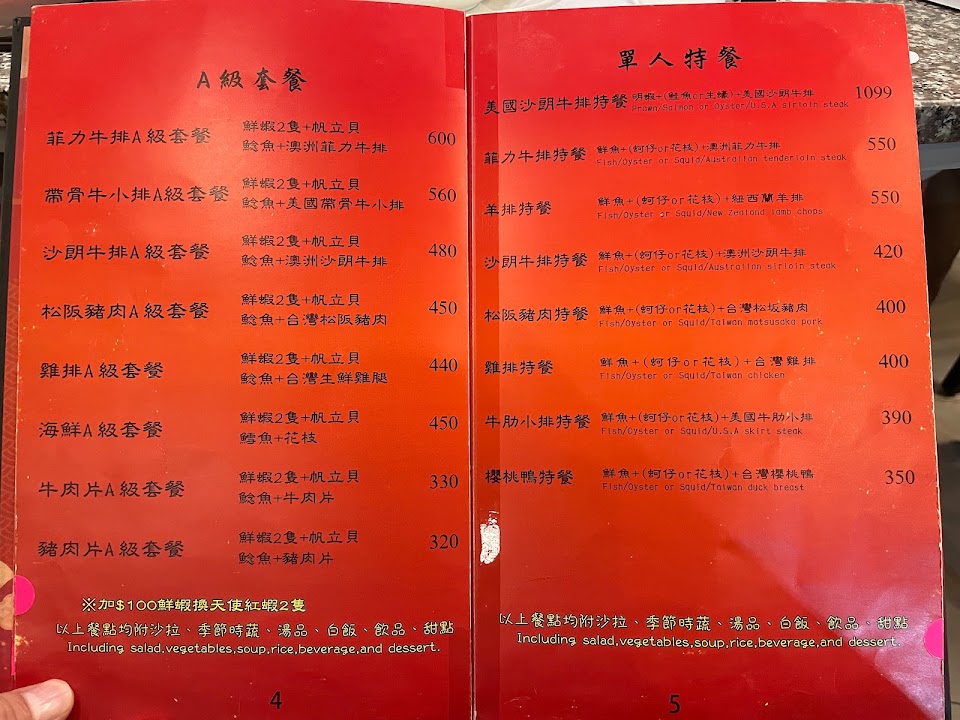 A級套餐
菲力牛排A級套餐 鮮蝦2隻+帆立貝 600
鯰魚+澳洲菲力牛排
帶骨牛小排A級套餐 鮮蝦2隻+帆立貝 560
鯰魚+美國帶骨牛小排
沙朗牛排A級套餐 鮮蝦2隻+帆立貝 480
鯰魚+澳洲沙朗牛排
松阪豬肉A級套餐 鮮蝦2隻+帆立貝 450
鯰魚+台灣松阪豬肉
雞排A級套餐 鮮蝦2隻+帆立貝 440
鯰魚+台灣生鮮雞腿
海鮮A級套餐 鮮蝦2隻+帆立貝 450
鱈魚+花枝
牛肉片A級套餐 鮮蝦2隻+帆立貝 330
鯰魚+牛肉片
豬肉片A級套餐 鮮蝦2隻+帆立貝 320
鯰魚+豬肉片
※加$100鮮蝦換天使紅蝦2隻
以上餐點均附沙拉、季節時蔬、湯品、白飯、飲品、甜點
Including salad,vegetables,soup,rice,beverage,and dessert.
4
單人特餐
美國沙朗牛排特餐 明蝦+(鮭魚or生蠔)+美國沙朗牛排 1099
Prawn/Salmon or Oyster/U.S.A sirloin steak
菲力牛排特餐 鮮魚+(蚵仔or花枝)+澳洲菲力牛排 550
Fish/Oyster or Squid/Australian tenderloin steak
羊排特餐 鮮魚+(蚵仔or花枝)+紐西蘭羊排 550
Fish/Oyster or Squid/New Zealand lamb chops
沙朗牛排特餐 鮮魚+(蚵仔or花枝)+澳洲沙朗牛排 420
Fish/Oyster or Squid/Australian sirloin steak
松阪豬肉特餐 鮮魚+(蚵仔or花枝)+台灣松坂豬肉 400
Fish/Oyster or Squid/Taiwan matsusaka pork
雞排特餐 鮮魚+(蚵仔or花枝)+台灣雞排 400
Fish/Oyster or Squid/Taiwan chicken
牛肋小排特餐 鮮魚+(蚵仔or花枝)+美國牛肋小排 390
Fish/Oyster or Squid/U.S.A skirt steak
櫻桃鴨特餐 鮮魚+(蚵仔or花枝)+台灣櫻桃鴨 350
Fish/Oyster or Squid/Taiwan duck breast
以上餐點均附沙拉、季節時蔬、湯品、白飯、飲品、甜點
Including salad,vegetables,soup,rice,beverage,and dessert.
5